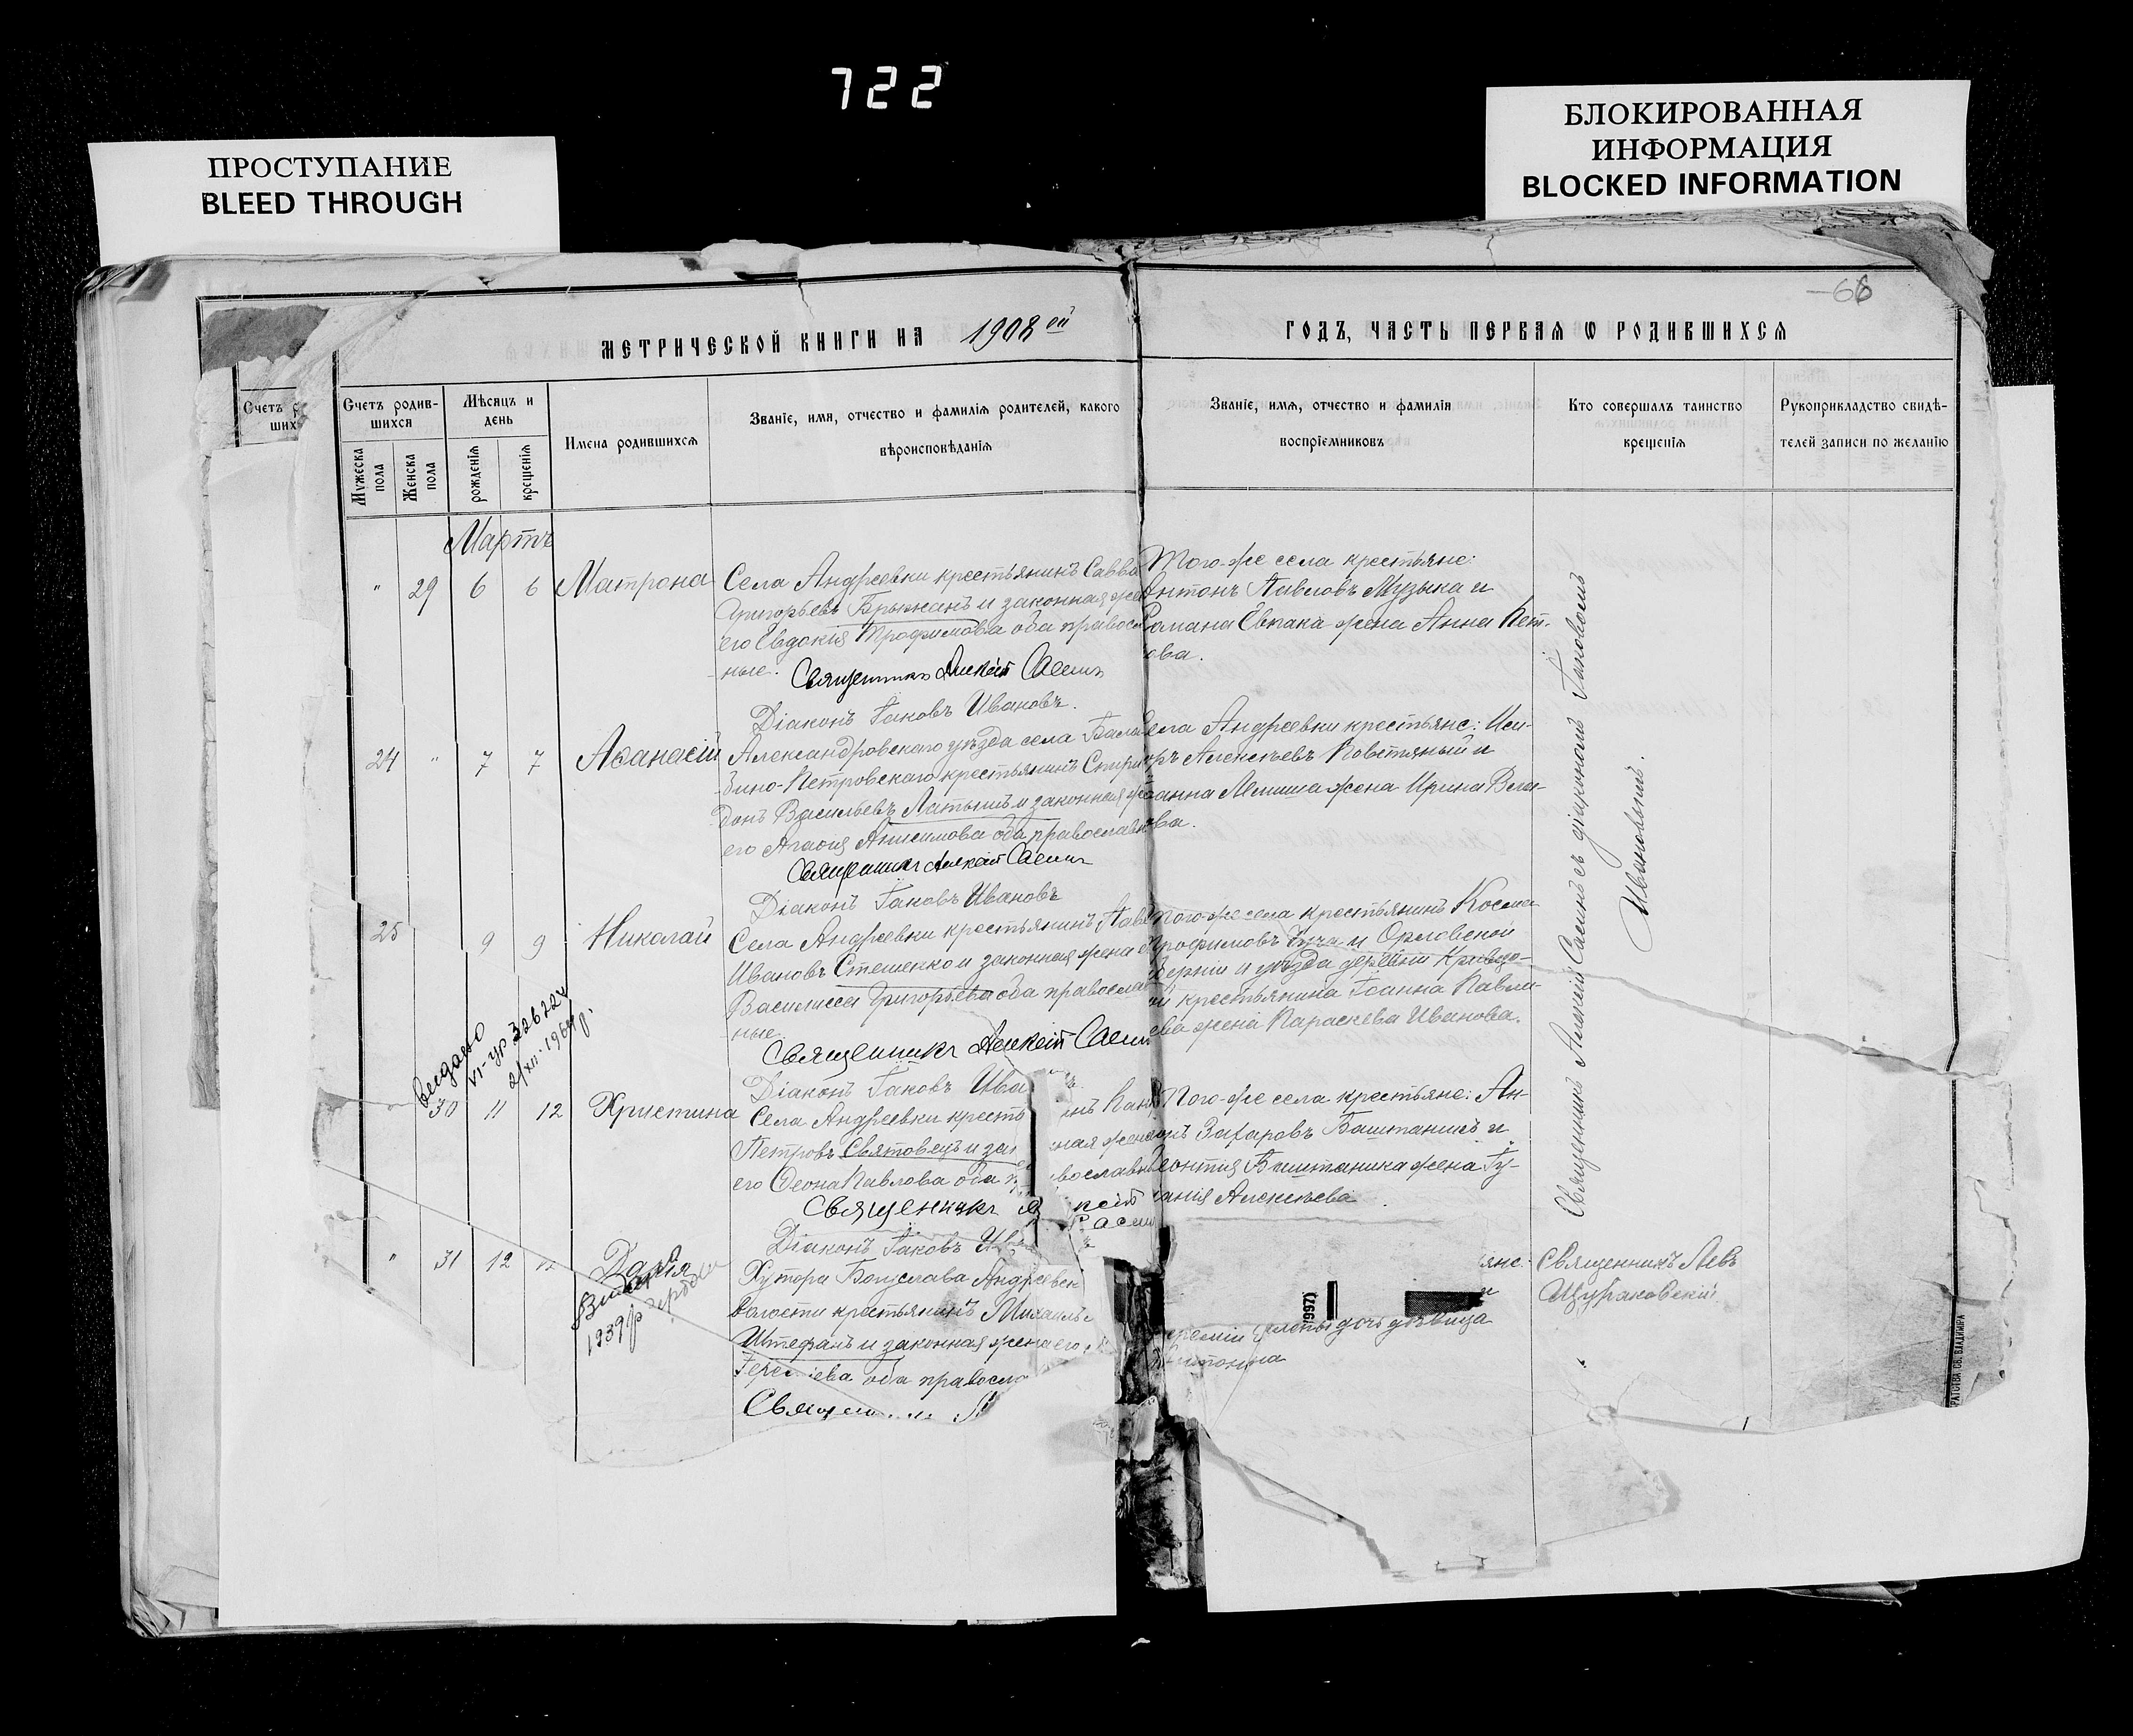 722
ПРОСТУПАНИЕ
BLEED THROUGH
БЛОКИРОВАННАЯ
ИНФОРМАЦИЯ
BLOCKED INFORMATION
МЕТРИЧЕСКОЙ КНИГИ НА 1908 ой
ГОДЪ, ЧАСТЬ ПЕРВАЯ Ѡ РОДИВШИХСЯ
Счетъ родив-
шихся
Мужеска пола
Женска пола
Мѣсяцъ и
день
рожденія
крещенія
Имена родившихся
Званіе, имя, отчество и фамилія родителей, какого
вѣроисповѣданія
Званіе, имя, отчество и фамилія
воспріемниковъ
Кто совершалъ таинство
крещенія
Рукоприкладство свидѣ-
телей записи по желанію
Мартъ
" 29 6 6 Матрона
Села Андреевки крестьянинъ Савва
Григорьевъ Брыжанъ и законная же
его Евдокія Трофимова оба правосл
ные.
Священникъ Алексій Саенъ
Діаконъ Іаковъ Ивановъ.
Того-же села крестьяне:
Антонъ Павловъ Музыка и
Романа Евпака жена Анна Пет-
ова.
24 " 7 7 Аѳанасій
Александровскаго уѣзда села
бино-Петровскаго крестьянинъ Спири
донъ Васильевъ Латышъ и законная ж
его Агаѳія Анисимова оба православ
Священникъ Алексій Саенъ
Діаконъ Іаковъ Ивановъ
ела Андреевки крестьяне: Иси-
оръ Алексѣевъ Повстяный и
оанна жена Ирина
ова.
25 9 9 Николай
Села Андреевки крестьянинъ Пав
Ивановъ Стешенко и законная жена
Василисса Григорьева оба правосла
ные
Священникъ Алексій Саен
Діаконъ Іаковъ Ива
того-же села крестьянинъ Косма
Трофимовъ и Орловской
берніи и уѣзда деревни Кривцо-
ой крестьянина Іоанна Павли-
ева жена Параскева Иванова.
видано
VI-УР 326724
2/XII-1964 р.
30 11 12 Христина
Села Андреевки кресть нъ
Петровъ Святовецъ и за ная жена
его Ѳеона Павлова оба п вославн
Священникъ А ксій Саен
Діаконъ Іаковъ Ив
Того-же села крестьяне: Ан-
онъ Захаровъ Баштаникъ и
Леонтія Баштаника жена Іу-
ланія Алексѣева
" 31 12 12 Дарія
1939 р
Хутора Богуслава Андреевск
волости крестьянинъ Михаилъ
Штефанъ и законная жена его
Іере іева оба правосла
Священ
яне:
и
ереміи дочь дѣвица
Антонина
Священникъ Левъ
Щураковскій
Священникъ Алексій Саенъ съ діакономъ Іаковомъ
Ивановымъ.
РАТСТВА СВ. ВЛАДИМІРА